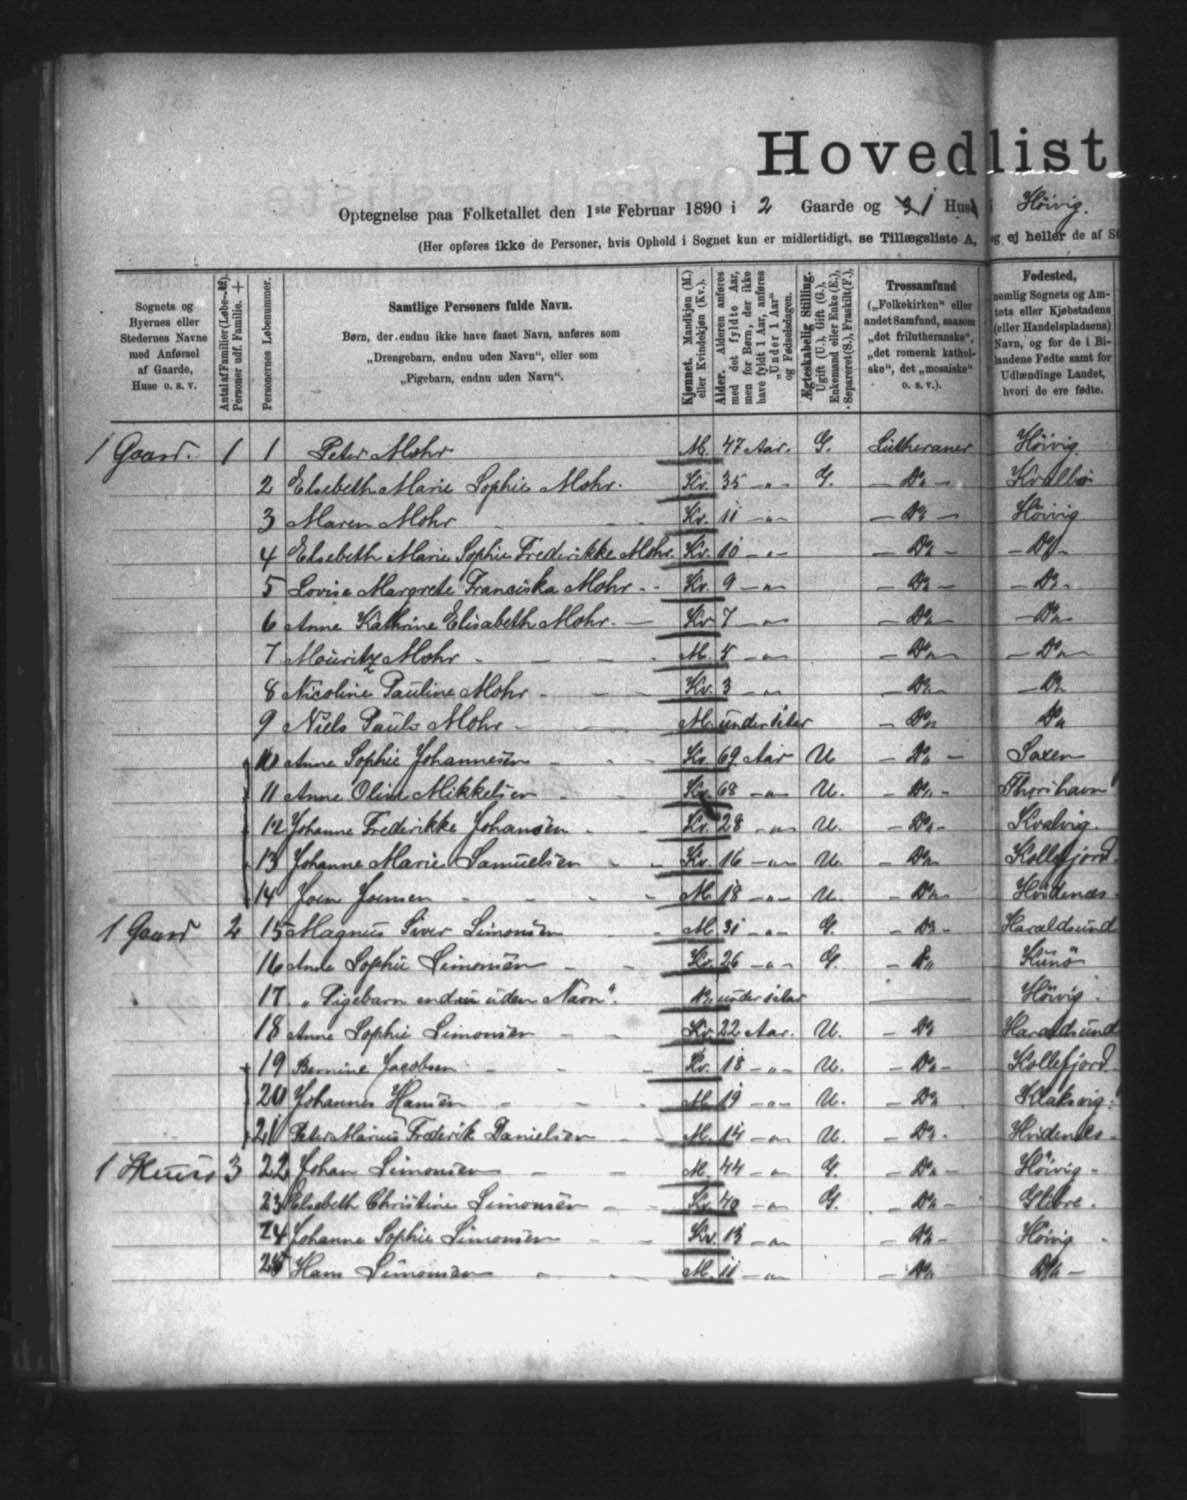 Hovedlist
Optegnelse paa Folketallet den 1ste Februar 1890 i 2 Gaarde og 1 Hus i Höivig.
(Her opføres ikke de Personer, hvis Ophold i Sognet kun er midlertidigt, se Tillægsliste A, og ej heller de af
Sognets og Byernes eller Stedernes Navne med Anførsel af Gaarde, Huse o. s. v.
Antal af Familier (Løbe-№). Personer udf. Familie. +
Personernes Løbenummer.
Samtlige Personers fulde Navn.
Børn, der endnu ikke have faaet Navn, anføres som
„Drengebarn, endnu uden Navn“, eller som
„Pigebarn, endnu uden Navn“.
Kjønnet. Mandkjøn (M.) eller Kvindekjøn (Kv.).
Alder. Alderen anføres med det fyldte Aar, men for Børn, der ikke have fyldt 1 Aar, anføres „Under 1 Aar“ og Fødselsdagen.
Ægteskabelig Stilling. Ugift (U.), Gift (G.), Enkemand eller Enke (E.), Separeret (S.), Fraskilt (F.),
Trossamfund („Folkekirken“ eller andet Samfund, saasom „det frilutheranske“, „det romersk katholske“, det „mosaiske“ o. s. v.).
Fødested, nemlig Sognets og Amtets eller Kjøbstadens (eller Handelspladsens) Navn, og for de i Bilandene Fødte samt for Udlændinge Landet, hvori de ere fødte.
1 Gaard. 1 1 Peter Mohr M. 47 Aar. G. Lutheraner Höivig
2 Elsebeth Marie Sophie Mohr. Kv. 35 -"- G. - Do - Kvalbö
3 Maren Mohr Kv. 11 -"- - Do - Höivig
4 Elsebeth Marie Sophie Frederikke Mohr Kv. 10 -"- - Do - - Do -
5 Lovise Margrete Franciska Mohr Kv. 9 -"- - Do - - Do -
6 Anne Kathrine Elisabeth Mohr. Kv 7 -"- - Do - - Do -
7 Mouritz Mohr M. 5 -"- - Do - - Do -
8 Nicoline Pauline Mohr Kv. 3 -"- - Do - - Do
9 Niels Pauli Mohr M. under 1 Aar - Do Do
10 Anne Sophie Johannesen Kv. 69 Aar U - Do - Saxen
11 Anne Olivia Mikkelsen Kv. 68 -"- U. - Do - Thorshavn
12 Johanne Frederikke Johansen Kv. 28 -"- U. - Do - Kvalvig.
13 Johanne Marie Samuelsen Kv. 16 -"- U. - Do Kollefjord.
14 Joen Joensen M. 18 -"- U. - Do Hvidenæs
1 Gaard 2 15 Magnus Siver Simonsen M. 31 -"- G. - Do - Haraldsund
16 Anna Sophie Simonsen Kv. 26 -"- G. - Do Kunö
17 „Pigebarn endnu uden Navn“. Kv. under 1 Aar Höivig
18 Anne Sophie Simonsen Kv. 22 Aar. U. - Do Haraldsund
19 Bernine Jacobsen Kv. 18 -"- U. - Do - Kollefjord
20 Johannes Hansen M. 19 -"- U. - Do Klaksvig.
21 Peter Marius Frederik Danielsen M. 14 -"- U. - Do. Hvidenæs
1 Huus 3 22 Johan Simonsen M. 44 -"- G. - Do - Höivig
23 Elsebeth Christine Simonsen Kv. 40 -"- G. - Do - Glibre.
24 Johanne Sophie Simonsen Kv. 13 -"- - Do - Höivig
25 Hans Simonsen M. 11 -"- - Do Do -